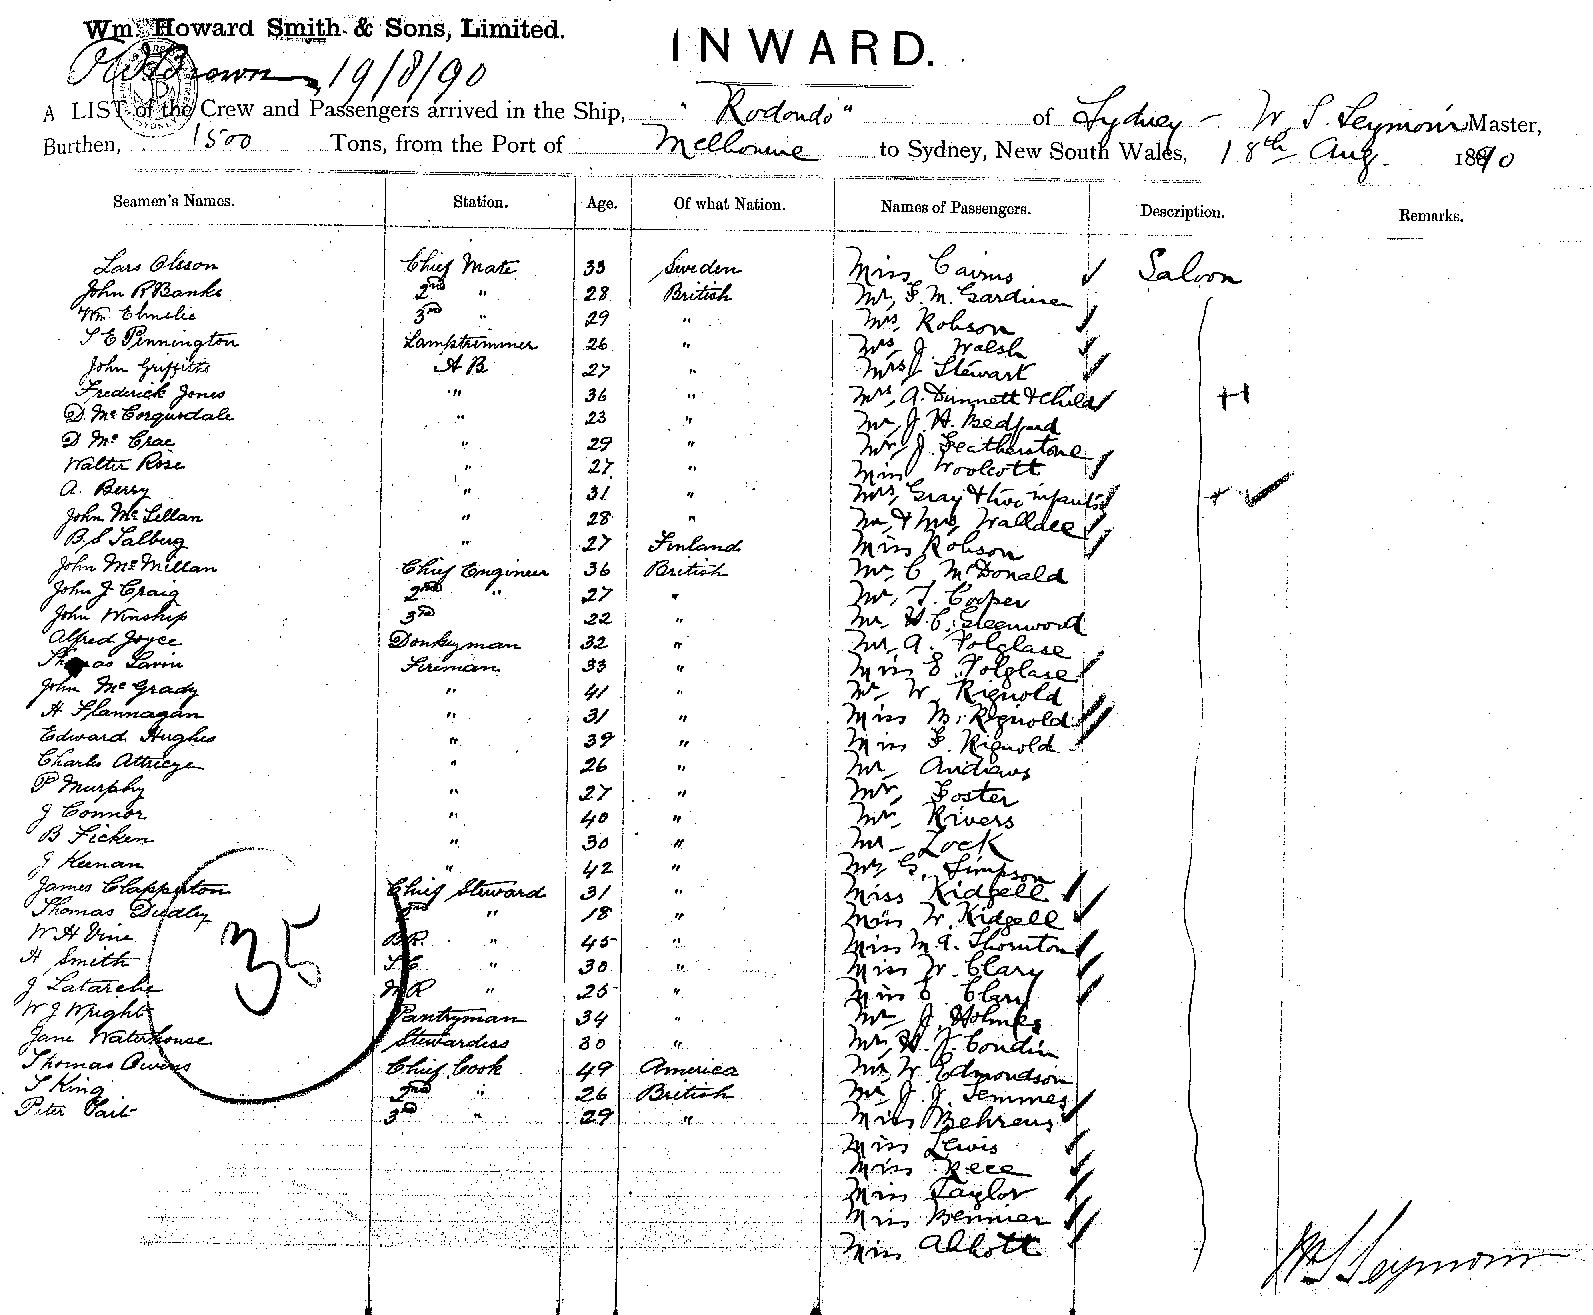 Wm. Howard Smith & Sons, Limited.
INWARD.
Brown, 19/8/90
A LIST of the Crew and Passengers arrived in the Ship, "Rodondo" of Sydney - W S Seymour Master,
Burthen, 1500 Tons, from the Port of Melbourne to Sydney, New South Wales, 18th Aug. 1890
Seamen's Names. Station. Age. Of what Nation. Names of Passengers. Description. Remarks.
Lars Olsson Chief Mate 33 Sweden Miss Cairns Saloon
John R Banks 2nd " 28 British Mr, F. M. Gardiner
Wm Elmslie 3rd " 29 " Mrs, Robson
S E Pennington Lamptrimmer 26 " Mrs, J. Walsh
John Griffiths A B 27 " Mrs J Stewart
Frederick Jones " 36 " Mrs, A. Dunnett & Child
D. McCorquodale " 23 " Mr, J. H. Bedford
D McCrae " 29 " Mr, J. Featherstone
Walter Rose " 27 " Miss Woolcott
A. Berry " 31 " Mrs, Gray & two infants
John McLellan " 28 " Mr, & Mrs, Wallace
B, S Salberg " 27 Finland Miss Robson
John McMillan Chief Engineer 36 British Mr, C McDonald
John J Craig 2nd " 27 " Mr, T. Cooper
John Winship 3rd 22 " Mr H. C. Greenwood
Alfred Joyce Donkeyman 32 " Mr, A. Polglase
Thomas Lavin Fireman 33 " Miss E Polglase
John McGrady " 41 " Mr W. Rignold
H Flannagan " 31 " Miss M. Rignold
Edward Hughes " 39 " Miss F. Rignold
Charles " 26 " Mr Andrews
P Murphy " 27 " Mr, Foster
J Connor " 40 " Mr Rivers
B Ficken " 30 " Mr Lock
J Keenan " 42 " Mr, G. Simpson
James Clapperton Chief Steward 31 " Miss Kidgell
Thomas Dudley 2nd " 18 " Miss W. Kidgell
W H Vine B.R. " 45 " Miss M A. Thornton
H Smith S.C. " 30 " Miss W. Clary
J Latarche M R " 25 " Miss E. Clary
W J Wright Pantryman 34 " Mr J. Holmes
Jane Waterhouse Stewardess 30 " Mr, H. J. Condin
Thomas Owens Chief Cook 49 America Mr, W. Edmondson
S King 2nd " 26 British Mr, J. J. Semmes
Peter Tait 3rd " 29 " Miss Behrens
Miss Lewis
Miss Rece
Miss Taylor
Miss Bennier
Miss Abbott
35
W S Seymour